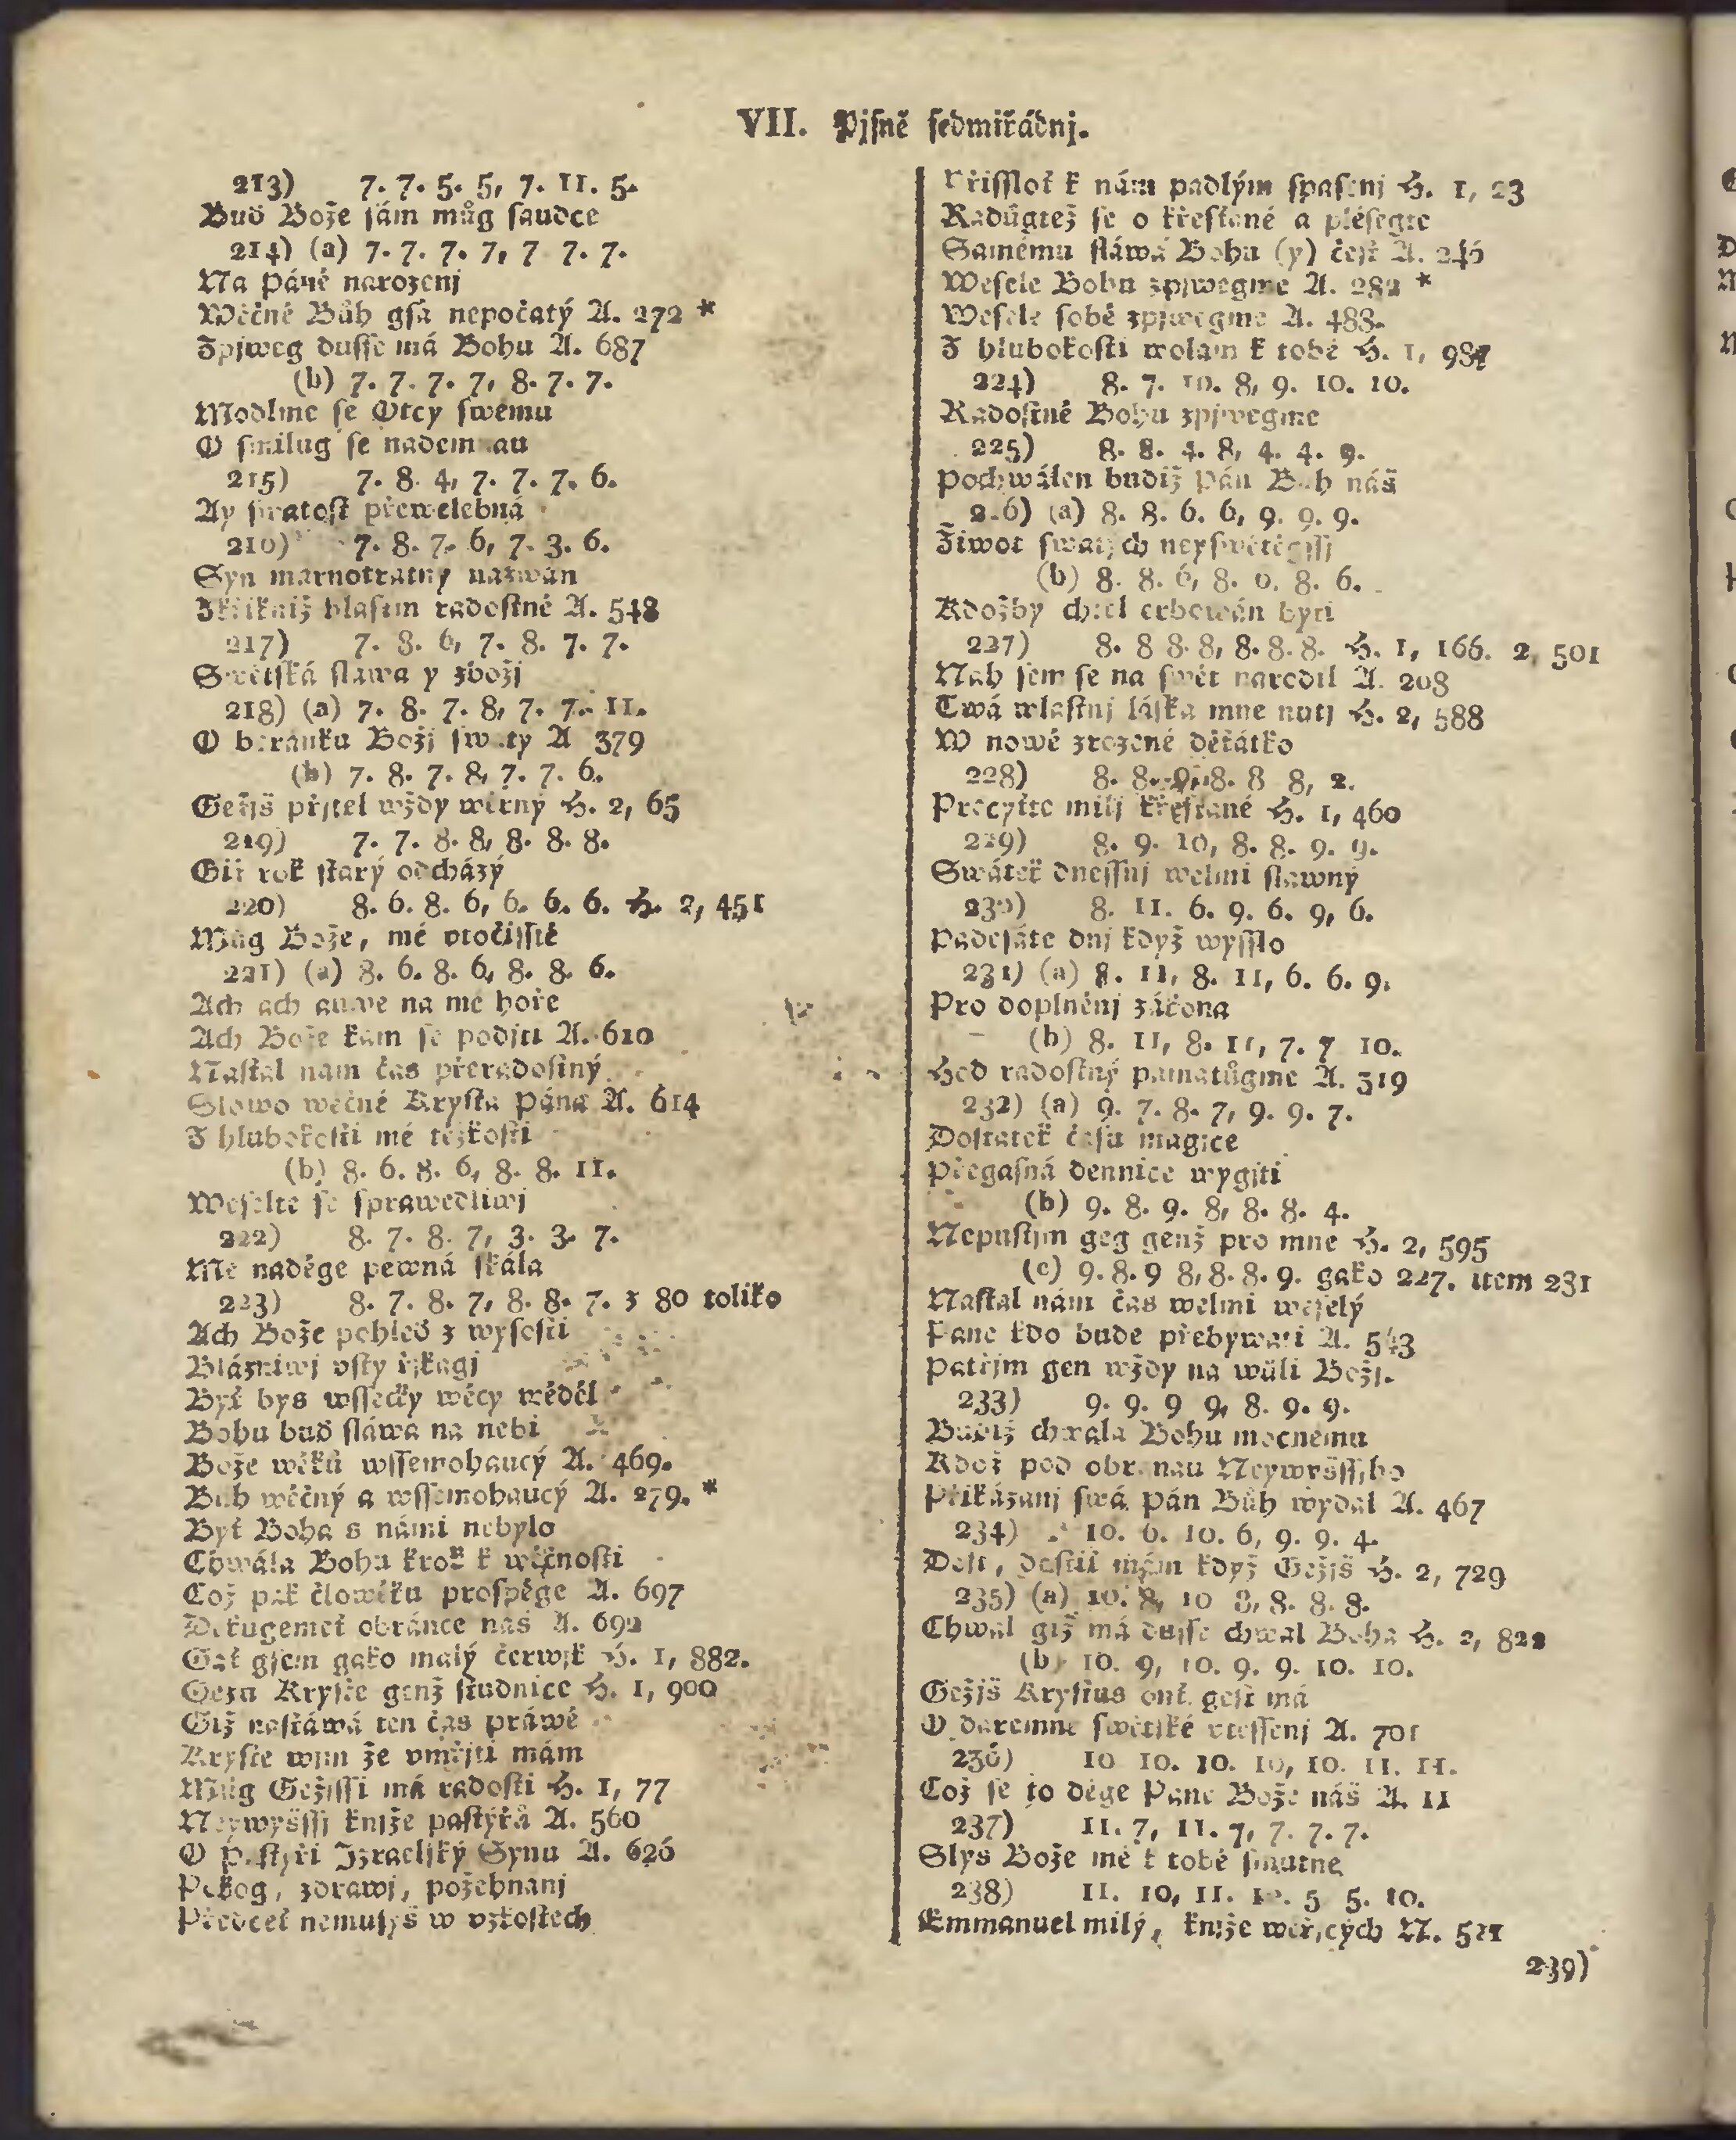 VII. Pjſně ſedmiřádnj.
213) 7. 7. 5. 5, 7. 11. 5.
Buď Bože ſám můg ſaudce
214) (a) 7. 7. 7. 7, 7 7. 7.
Na Páně narozenj
Wěčně Bůh gſa nepočatý A. 272 *
Zpjweg duſſe má Bohu A. 687
(b) 7. 7. 7. 7, 8. 7. 7.
Modlme ſe Otcy ſwému
O ſmilug ſe nadem
215) 7. 8. 4, 7. 7. 7. 6.
Ay ſwatoſt přewelebná
216) 7. 8. 7. 6, 7. 3. 6.
Syn marnotratný nazwán
Zkřikniž hlaſem radoſtně A. 548
217) 7. 8. 6, 7. 8. 7. 7.
Swětſká ſlawa y zbožj
218) (a) 7. 8. 7. 8, 7. 7. 11.
O beránku Božj ſwatý A 379
(b) 7. 8. 7. 8, 7. 7. 6.
Gežjš přjtel wždy wěrný H. 2, 65
219) 7. 7. 8. 8, 8. 8. 8.
Giž rok ſtarý odcházý
220) 8. 6. 8. 6, 6. 6. 6. H. 2, 451
Můg Bože, mé vtočiſſtě
221) (a) 8. 6. 8. 6, 8. 8. 6.
Ach ach auwe na mé hoře
Ach Bože kam ſe podjti A. 610
Naſtal nám čas přeradoſtný
Slowo wěčné Kryſta Pána A. 614
Z hlubokoſti mé těžkoſti
(b) 8. 6. 8. 6, 8. 8. 11.
Weſelte ſe ſprawedliwj
222) 8. 7. 8. 7, 3. 3. 7.
Mé naděge pewná ſkála
223) 8. 7. 8. 7, 8. 8. 7. z 80 toliko
Ach Bože pohleď z wyſoſti
Blázniwj vſty řjkagj
Byť bys wſſecky wěcy wěděl
Bohu buď ſláwa na nebi
Bože wěků wſſemohaucý A. 469.
Bůh wěčný a wſſemohaucý A. 279. *
Byť Boha s námi nebylo
Chwála Bohu krok k wěčnoſti
Což pak člowěku proſpěge A. 697
Děkugemeť obránce náš A. 692
Gak gſem gako malý čerwjk H. 1, 882.
Gezu Kryſte genž ſtudnice H. 1, 900
Giž naſtáwá ten čas práwě
Kryſte wjm že vmřjti mám
Můg Gežjſſi má radoſti H. 1, 77
Neywyšſſj knjže paſtýřů A. 560
O paſtýři Izraelſký Synu A. 626
Pokog, zdrawj, požehnánj
Předceť nemuſyš w vzkoſtech
Přiſſloť k nám padlým ſpaſenj H. 1, 23
Radůgtež ſe o křeſťané a pléſegte
Samému ſláwa Bohu (y) čeſt A. 246
Weſele Bohu zpjwegme A. 282 *
Weſele ſobě zpjwegme A. 483.
Z hlubokoſti wolám k tobě H. 1, 987
224) 8. 7. 10. 8, 9. 10. 10.
Radoſtně Bohu zpjwegme
225) 8. 8. 4. 8, 4. 4. 9.
Pochwálen budiž Pán Bůh náš
226) (a) 8. 8. 6. 6, 9. 9. 9.
Žiwot ſwatých neyſwětěgſſj
(b) 8. 8. 6, 8. 6. 8. 6.
Kdožby chtěl erbowán byti
227) 8. 8 8. 8, 8. 8. 8. H. 1, 166. 2, 501
Nah ſem ſe na ſwět narodil A. 208
Twá wlaſtnj láſka mne nutj H. 2, 588
W nowě zrozené děťátko
228) 8. 8. 8. 8 8, 2.
Procyťte milj křeſťané H. 1, 460
229) 8. 9. 10, 8. 8. 9. 9.
Swátek dneſſnj welmi ſlawný
230) 8. 11. 6. 9. 6. 9, 6.
Padeſáte dnj když wyſſlo
231) (a) 8. 11, 8. 11, 6. 6. 9.
Pro doplněnj zákona
(b) 8. 11, 8. 11, 7. 7 10.
Hod radoſtný pamatůgme A. 319
232) (a) 9. 7. 8. 7, 9. 9. 7.
Doſtatek čaſu magjce
Přegaſná dennice wygiti
(b) 9. 8. 9. 8, 8. 8. 4.
Nepuſtjm geg genž pro mne H. 2, 595
(c) 9. 8. 9 8, 8. 8. 9. gako 227. item 231
Naſtal nám čas welmi weſelý
Pane kdo bude přebýwati A. 543
Patřjm gen wždy na wůli Božj.
233) 9. 9. 9 9, 8. 9. 9.
Budiž chwála Bohu mocnému
Kdož pod obranau Neywyšſſjho
Přikázanj ſwá Pán Bůh wydal A. 467
234) 10. 6. 10. 6, 9. 9. 4.
Doſt, doſtiť mám když Gežjš H. 2, 729
235) (a) 10. 8, 10 8, 8. 8. 8.
Chwal giž má duſſe chwal Boha H. 2, 822
(b) 10. 9, 10. 9. 9. 10. 10.
Gežjš Kryſtus onť geſt má
O daremné ſwětſké vteſſenj A. 701
236) 10 10. 10. 10, 10. 11. 11.
Což ſe to děge Pane Bože náš A. 11
237) 11. 7, 11. 7, 7. 7. 7.
Slyš Bože mé k tobě ſmutné
238) 11. 10, 11. 10. 5 5. 10.
Emmanuel milý, knjže wěřjcých N. 521
239)